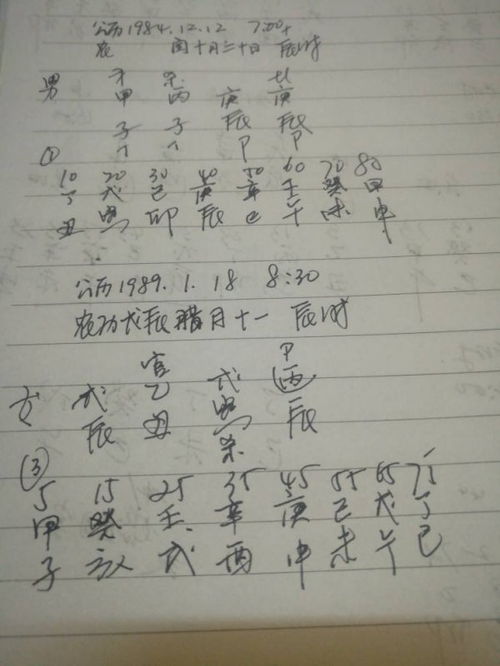 公历1984.12.12 7:00+
农 闰十月二十日 辰时
男 才甲 杀丙 庚 比庚
子 子 辰 辰
个 个 P P
①
10 20 30 40 50 60 70 80
丁 戊 己 庚 辛 壬 癸 甲
丑 寅 卯 辰 巳 午 未 申
公历1989.1.18 8:30
农历戊辰腊月十一 辰时
官 P
女 戊 乙 戊 丙
辰 丑 寅 辰
杀
③
5 15 25 35 45 55 65 75
甲 癸 壬 辛 庚 己 戊 丁
子 亥 戌 酉 申 未 午 巳